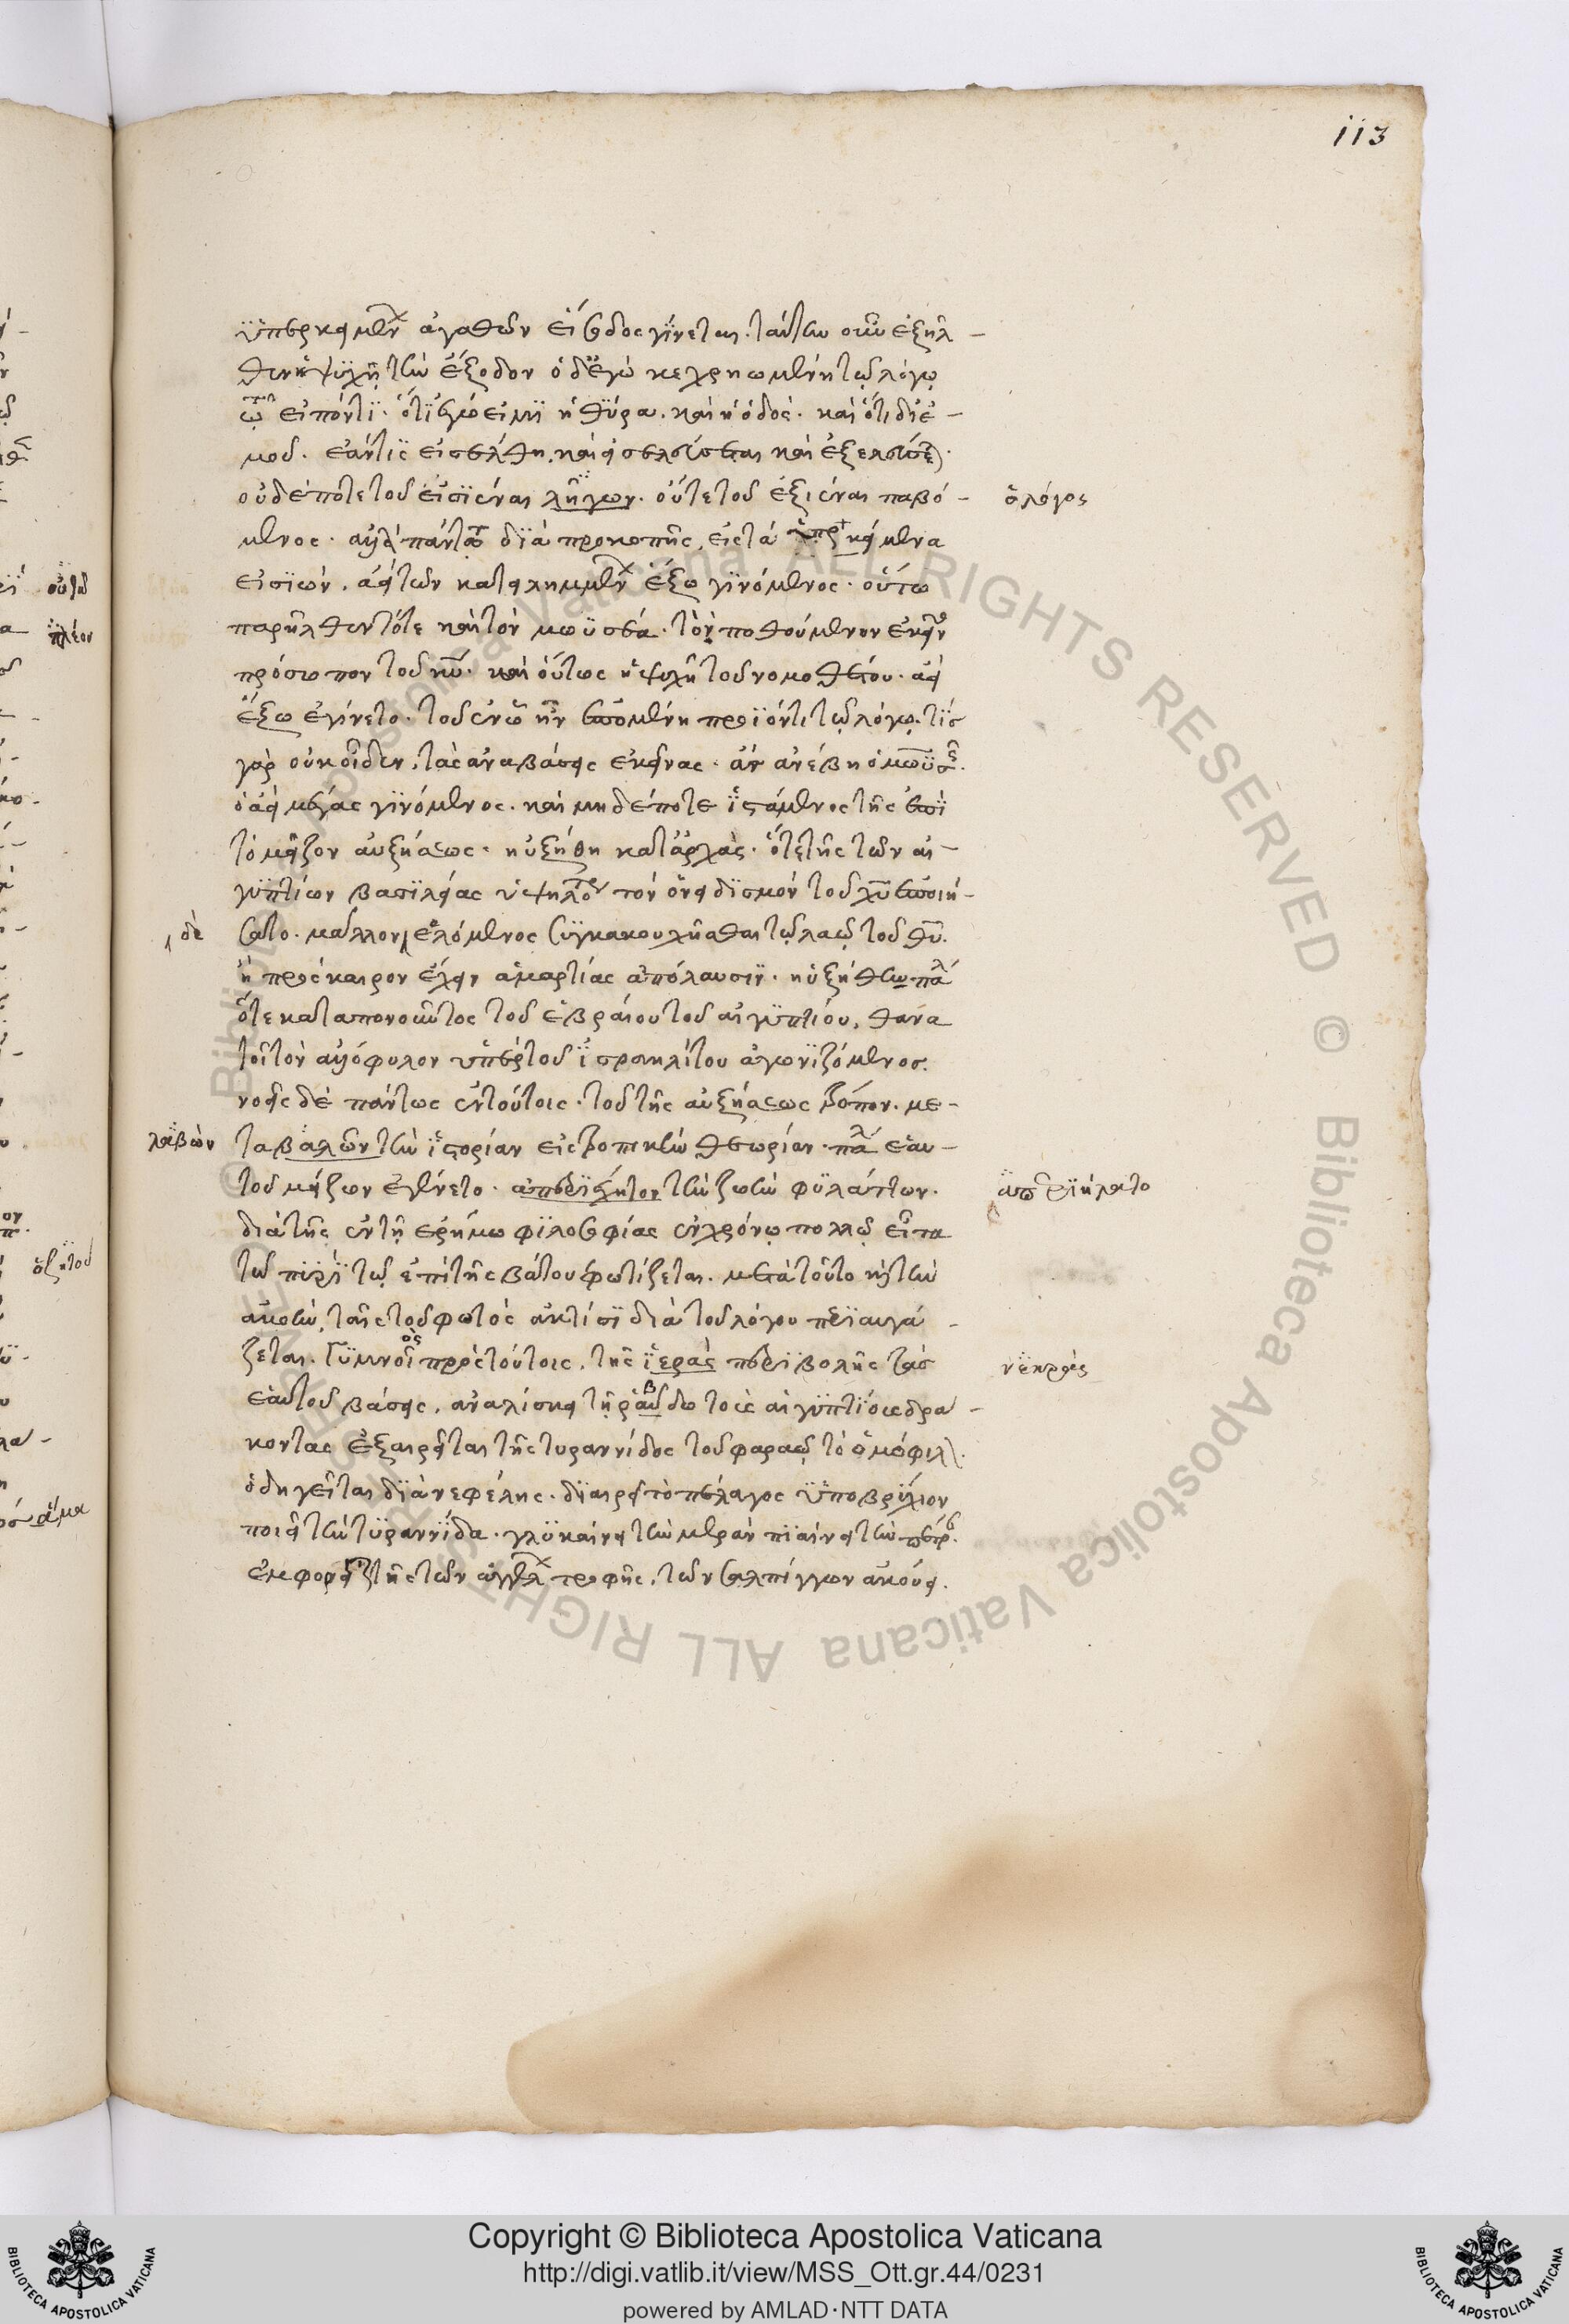 113
ὑπερκειμένων ἀγαθῶν εἴσοδος γίνεται. ταύτην οὖν ἐξῆλ-
θεν ἡ ψυχὴ τὴν ἔξοδον ὁδηγῷ κεχρημένη τῷ λόγῳ
τῷ εἰπόντι· ὅτι ἐγώ εἰμι ἡ θύρα. καὶ ἡ ὁδός. καὶ ὅτι δι' ἐ-
μοῦ. ἐάν τις εἰσέλθῃ. καὶ εἰσελεύσεται καὶ ἐξελεύσεται.
οὐδέποτε τοῦ εἰσιέναι λήγων. οὔτε τοῦ ἐξιέναι παυό-
ὁ λόγος
μενος. ἀλλὰ πάντοτε διὰ προκοπῆς, εἰς τὰ ὑπερκείμενα
εἰσιών. ἀεὶ τῶν κατειλημμένων ἔξω γινόμενος. οὕτω
παρῆλθεν τότε καὶ τὸν μωϋσέα. τὸ ποθούμενον ἐκεῖνο
πρόσωπον τοῦ κυ. καὶ οὕτως ἡ ψυχὴ τοῦ νομοθέτου. ἀεὶ
ἔξω ἐγίνετο. τοῦ ἐν ᾧ ἦν ἑπομένη προϊόντι τῷ λόγῳ. τίς
γὰρ οὐκ οἶδεν. τὰς ἀναβάσεις ἐκείνας. ἃς ἀνέβη ὁ μωϋσῆς.
ὁ ἀεὶ μέγας γινόμενος. καὶ μηδέποτε ἱστάμενος τῆς ἐπὶ
τὸ μεῖζον αὐξήσεως. ηὐξήθη κατ' ἀρχὰς. ὅτε τῆς τῶν αἰ-
γυπτίων βασιλείας ὑψηλότερον τὸν ὀνειδισμὸν τοῦ χυ ἐποιή-
δὲ
σατο. μᾶλλον ἑλόμενος συγκακουχεῖσθαι τῷ λαῷ τοῦ θυ.
ἢ πρόσκαιρον ἔχειν ἁμαρτίας ἀπόλαυσιν. ηὐξήθη πάλιν
ὅτε καταπονοῦντος τοῦ ἑβραίου τοῦ αἰγυπτίου, θανα
τοῖ τὸν ἀλλόφυλον ὑπὲρ τοῦ ἰσραηλίτου ἀγωνιζόμενος.
νοεῖς δὲ πάντως ἐν τούτοις. τοῦ τῆς αὐξήσεως τρόπον. με-
λαβὼν
ταβαλὼν τὴν ἱστορίαν εἰς τροπικὴν θεωρίαν. πάλιν ἑαυ-
τοῦ μείζων ἐγένετο. ἀπερίηχητον τὴν ζωὴν φυλάττων.
διὰ τῆς ἐν τῇ ἐρήμω φιλοσοφίας ἐν χρόνῳ πολλῷ εἶτα
τῶ πυρὶ τῷ ἐπὶ τῆς βάτου φωτίζεται. μετὰ τοῦτο καὶ τὴν
ἀκοὴν, ταῖς τοῦ φωτὸς ἀκτίσι διὰ τοῦ λόγου περιαυγά-
ζεται. γυμνοῖ πρὸς τούτοις, τῆς ἱερᾶς περιβολῆς τὰς
νεκρᾶς
ἑαυτοῦ βάσεις, ἀναλίσκει τῇ ράβδω τοὺς αἰγυπτίους δρά-
κοντας ἐξαιρεῖται τῆς τυραννίδος τοῦ φαραὼ τὸ ὁμόφυλον.
ὁδηγεῖται διὰ νεφέλης. διαιρεῖ τὸ πέλαγος ὑποβρύχιον
ποιεῖ τὴν τυραννίδα. γλυκαίνει τὴν μερὰν πιαίνει τὴν πέτραν.
ἐμφορεῖται τῆς τῶν ἀγγέλων τροφῆς. τῶν σαλπίγγων ἀκούει.
Copyright © Biblioteca Apostolica Vaticana
http://digi.vatlib.it/view/MSS_Ott.gr.44/0231
powered by AMLAD·NTT DATA